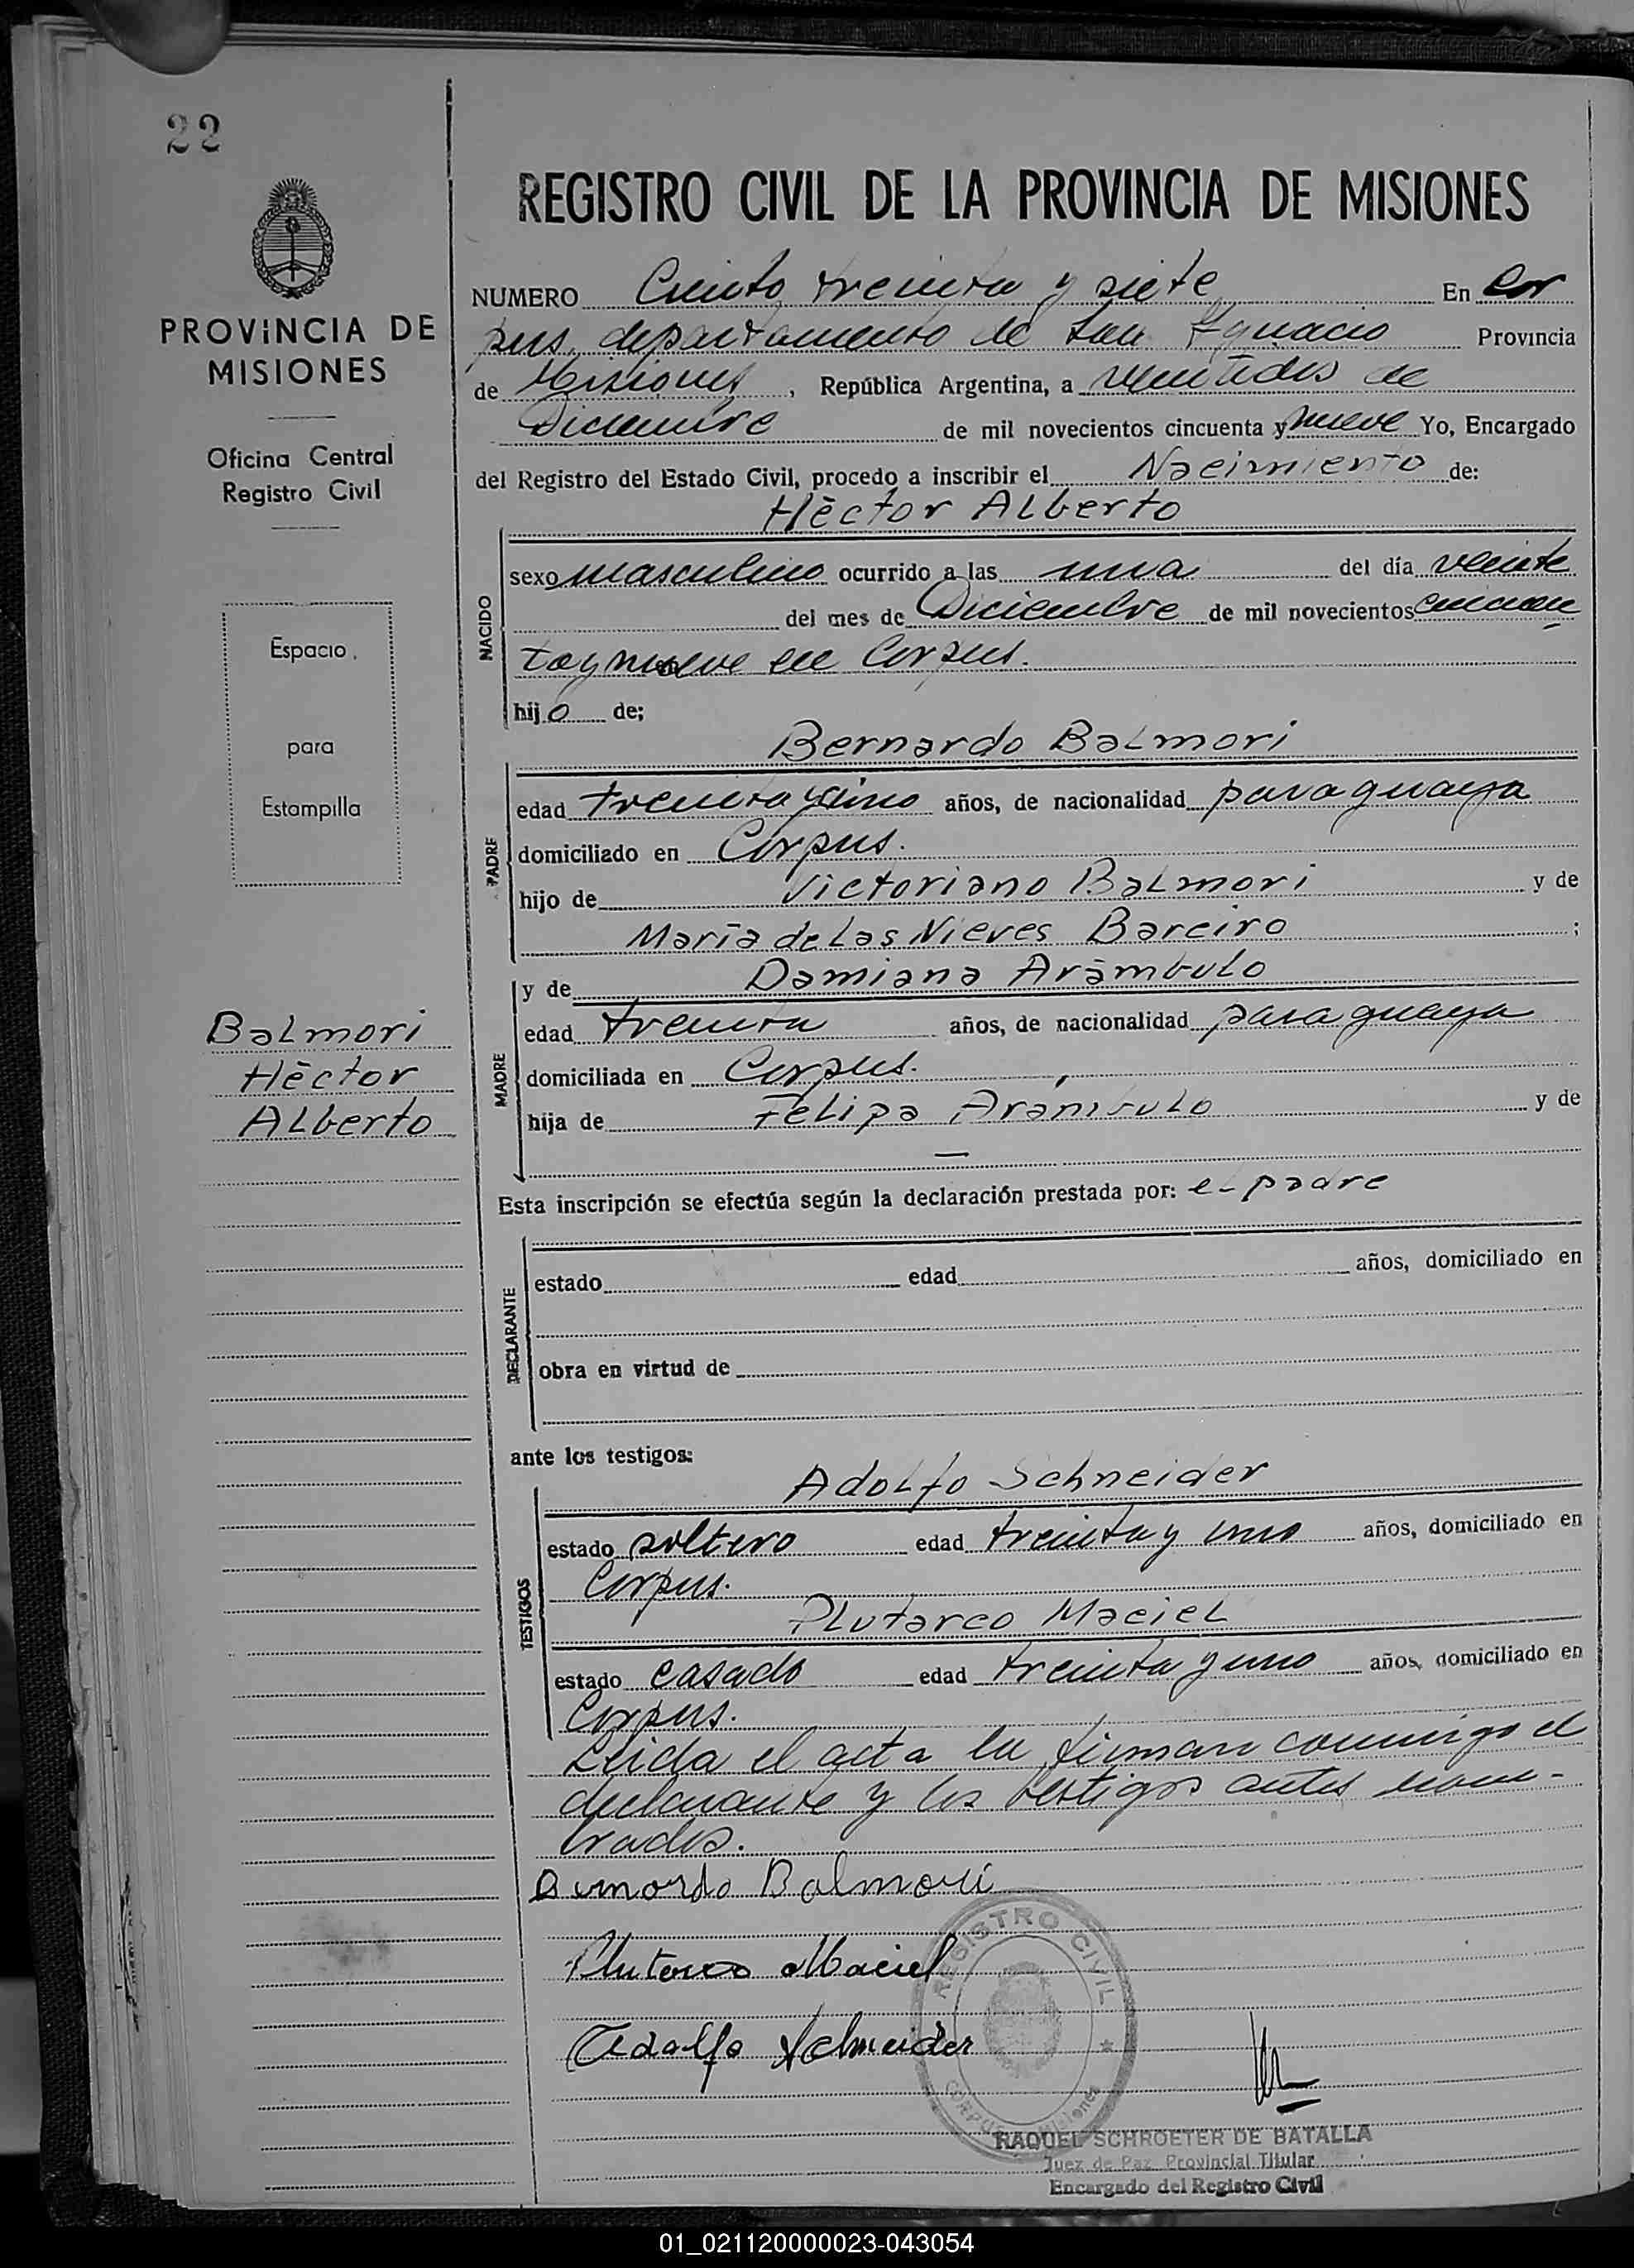 22
REGISTRO CIVIL DE LA PROVINCIA DE MISIONES
PROVINCIA DE
MISIONES
Oficina Central
Registro Civil
Espacio
para
Estampilla
Balmori
Héctor
Alberto
NUMERO Ciento treinta y siete En Cor
pus, departamento de San Ygnacio Provincia
de Misiones, República Argentina, a veintidos de
Diciembre de mil novecientos cincuenta y nueve Yo, Encargado
del Registro del Estado Civil, procedo a inscribir el Nacimiento de:
Héctor Alberto
NACIDO
sexo masculino ocurrido a las una del día veinte
del mes de Diciembre de mil novecientos cincuen
taynueve en Corpus.
hijo de;
Bernardo Balmori
PADRE
edad treinta y uno años, de nacionalidad paraguaya
domiciliado en Corpus.
hijo de Victoriano Balmori y de
María de Las Nieves Bareiro ;
MADRE
y de Damiana Arámbulo
edad treinta años, de nacionalidad paraguaya
domiciliada en Corpus.
hija de Felipa Arámbulo y de
—
Esta inscripción se efectúa según la declaración prestada por: el padre
DECLARANTE
estado edad años, domiciliado en
obra en virtud de
ante los testigos:
Adolfo Schneider
TESTIGOS
estado soltero edad treinta y uno años, domiciliado en
Corpus.
Plutarco Maciel
estado casado edad treinta y uno años, domiciliado en
Corpus.
Leida el acta la firman conmigo el
declarante y los testigos antes nom-
brados.
Bernardo Balmori
Plutarco Maciel
Adolfo Schneider
REGISTRO CIVIL
CORPUS Misiones
RAQUEL SCHROETER DE BATALLA
Juez de Paz Provincial Titular
Encargado del Registro Civil
01_021120000023-043054